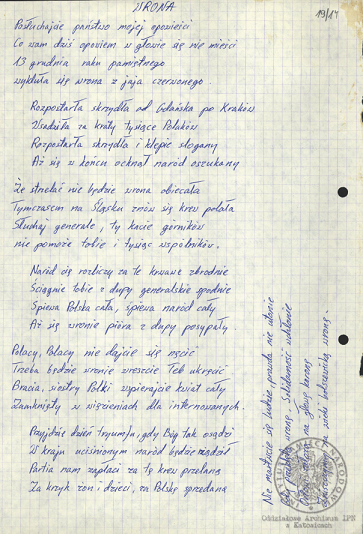 WRONA
19/17
Posłuchajcie państwo mojej opowieści
Co wam dziś opowiem w głowie się nie mieści
13 grudnia roku pamiętnego
wykluła się wrona z jaja czerwonego
Rozpostarła skrzydła od Gdańska po Kraków
Wsadziła za kraty tysiące Polaków
Rozpostarła skrzydła i klepie slogany
Aż się w końcu ocknął naród oszukany
Że strzelać nie będzie wrona obiecała
Tymczasem na Śląsku znów się krew polała
Słuchaj generale, ty kacie górników
nie pomoże tobie i tysiąc wspólników.
Naród cię rozliczy za te krwawe zbrodnie
Ściągnie tobie z dupy generalskie spodnie
Śpiewa Polska cała, śpiewa naród cały
Aż się wronie pióra z dupy posypały
Polacy, Polacy nie dajcie się nęcić
Trzeba będzie wronie wreszcie łeb ukręcić
Bracia, siostry Polki wspierajcie kwiat cały
Zamknięty w więzieniach dla internowanych.
Przyjdzie dzień tryumfu, gdy Bóg tak osądzi
W kraju uciśnionym naród będzie rządził
Partia nam zapłaci za tę krew przelaną
Za krzyk żon i dzieci, za Polskę sprzedaną
Nie martwcie się ludzie, prawda nie utonie
wroną. Solidarność
na głowę
wroną.
Oddziałowe Archiwum IPN
w Katowicach